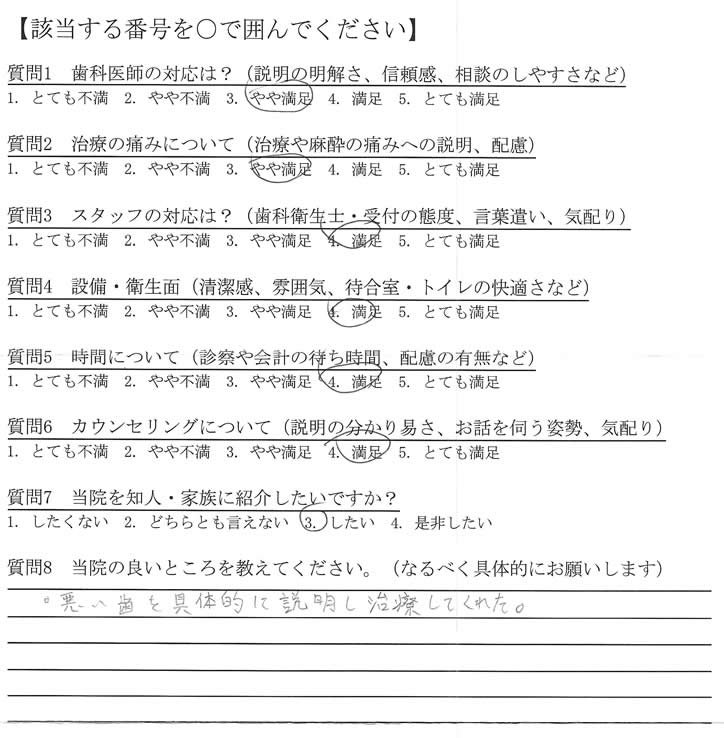 【該当する番号を〇で囲んでください】
質問1　歯科医師の対応は？（説明の明解さ、信頼感、相談のしやすさなど）
1. とても不満　2. やや不満　3. やや満足　4. 満足　5. とても満足
質問2　治療の痛みについて（治療や麻酔の痛みへの説明、配慮）
1. とても不満　2. やや不満　3. やや満足　4. 満足　5. とても満足
質問3　スタッフの対応は？（歯科衛生士・受付の態度、言葉遣い、気配り）
1. とても不満　2. やや不満　3. やや満足　4. 満足　5. とても満足
質問4　設備・衛生面（清潔感、雰囲気、待合室・トイレの快適さなど）
1. とても不満　2. やや不満　3. やや満足　4. 満足　5. とても満足
質問5　時間について（診察や会計の待ち時間、配慮の有無など）
1. とても不満　2. やや不満　3. やや満足　4. 満足　5. とても満足
質問6　カウンセリングについて（説明の分かり易さ、お話を伺う姿勢、気配り）
1. とても不満　2. やや不満　3. やや満足　4. 満足　5. とても満足
質問7　当院を知人・家族に紹介したいですか？
1. したくない　2. どちらとも言えない　3. したい　4. 是非したい
質問8　当院の良いところを教えてください。（なるべく具体的にお願いします）
。悪い歯を具体的に説明し治療してくれた。